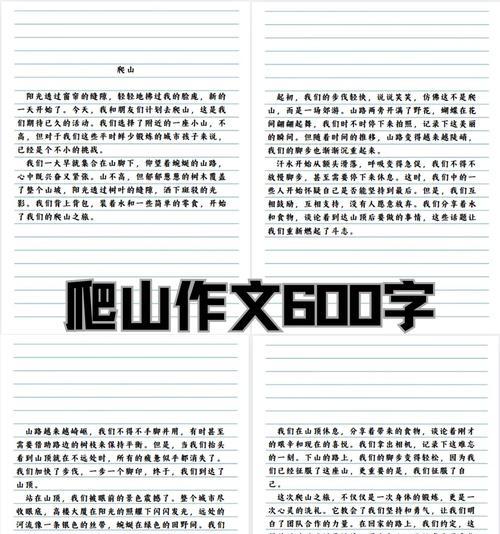 爬山
阳光透过窗帘的缝隙，轻轻地拂过我的脸庞，新的
一天开始了。今天，我和朋友们计划去爬山，这是我
们期待已久的活动。我们选择了附近的一座小山，不
高，但对于我们这些平时鲜少锻炼的城市孩子来说，
已经是个不小的挑战。
我们一大早就集合在山脚下，仰望着蜿蜒的山路，
心中既兴奋又紧张。山不高，但郁郁葱葱的树木覆盖
了整个山坡，阳光透过树叶的缝隙，洒下斑驳的光
影。我们背上背包，装着水和一些简单的零食，开始
了我们的爬山之旅。
起初，我们的步伐轻快，说说笑笑，仿佛这不是爬
山，而是一场郊游。山路两旁开满了野花，蝴蝶在花
间翩翩起舞，我们时不时停下来拍照，记录下这美丽
的瞬间。但随着时间的推移，山路变得越来越陡峭，
我们的脚步也渐渐沉重起来。
汗水开始从额头滑落，呼吸变得急促，我们不得不
放慢脚步，甚至需要停下来休息。这时，我们中的一
些人开始怀疑自己是否能坚持到最后。但是，我们互
相鼓励，互相支持，没有人愿意放弃。我们分享着水
和食物，谈论着到达山顶后要做的事情，这些话题让
我们重新燃起了斗志。
爬山作文600字
山路越来越崎岖，我们不得不手脚并用，有时甚至
需要借助路边的树枝来保持平衡。但是，当我们抬头
看到山顶就在不远处时，所有的疲惫似乎都消失了。
我们加快了步伐，一步一个脚印，终于，我们到达了
山顶。
站在山顶，我们被眼前的景色震撼了。整个城市尽
收眼底，高楼大厦在阳光的照耀下闪闪发光，远处的
河流像一条银色的丝带，蜿蜒在绿色的田野间。我们
我们在山顶休息，分享着带来的食物，谈论着刚才
的艰辛和现在的喜悦。我们拿出相机，记录下这难忘
的一刻。下山的路上，我们的脚步变得轻松，因为我
们已经征服了这座山，更重要的是，我们征服了自
己。
这次爬山之旅，不仅仅是一次身体的锻炼，更是一
次心灵的洗礼。它教会了我们坚持和勇气，让我们明
白了团队合作的力量。在回家的路上，我们约定，这